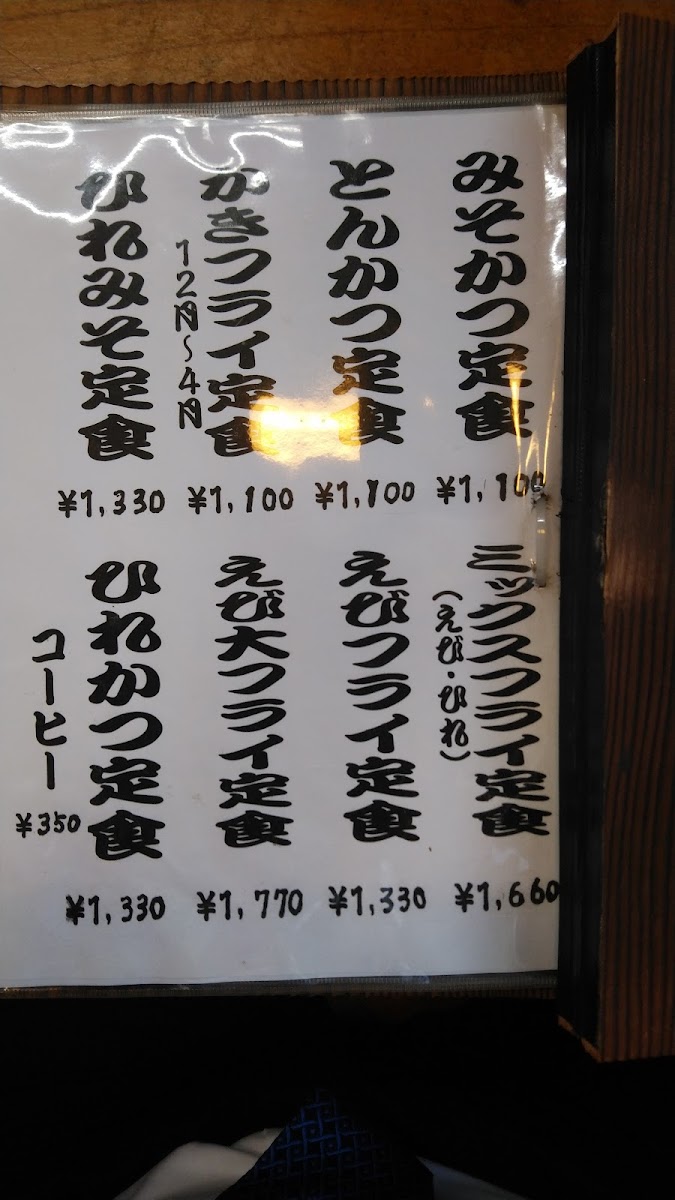 みそかつ定食
¥1,100
とんかつ定食
¥1,100
かきフライ定食
12月～4月
¥1,100
ひれみそ定食
¥1,330
ミックスフライ定食
(えび・ひれ)
¥1,660
えびフライ定食
¥1,330
えび大フライ定食
¥1,770
ひれかつ定食
¥1,330
コーヒー
¥350